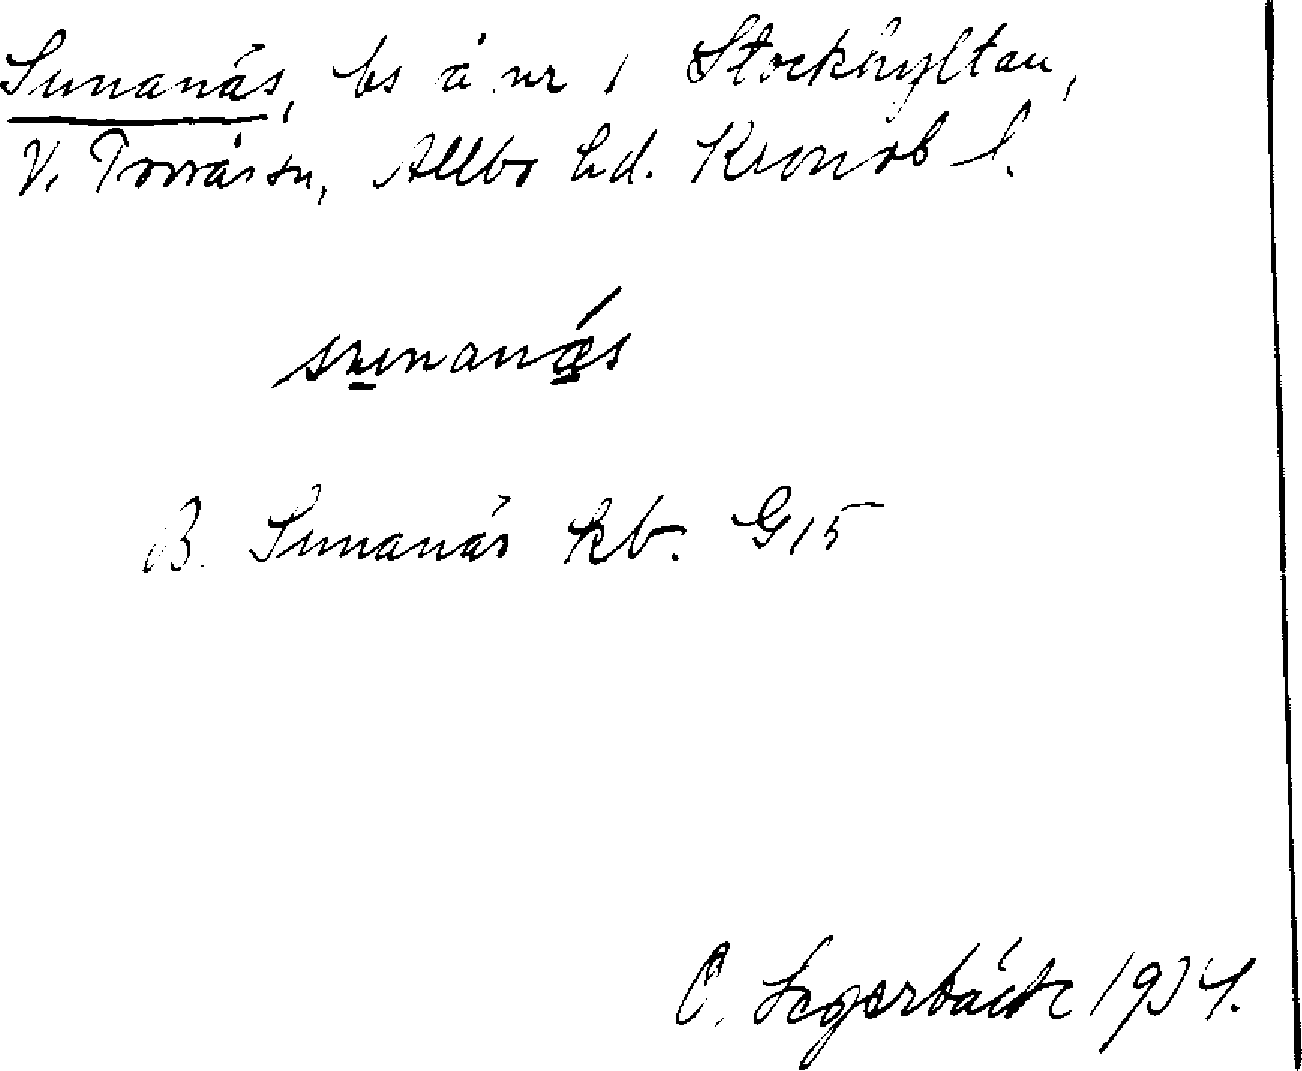 Sunanäs, bs å nr 1 Stockhyltan,
V. Torsås sn, Allbo hd. Kronob l.
sunanäs
B. Sunanäs kb. G15
O. Lagerbäck 1934.